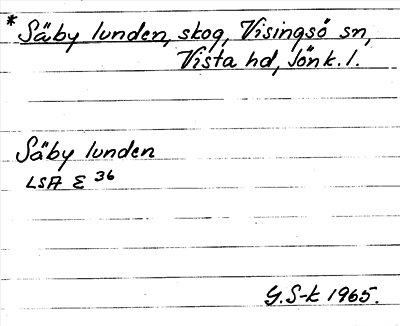 *Säby lunden, skog, Visingsö sn,
Vista hd, Jönk. l.
Säby lunden
LSA E 36
G.S-k 1965.